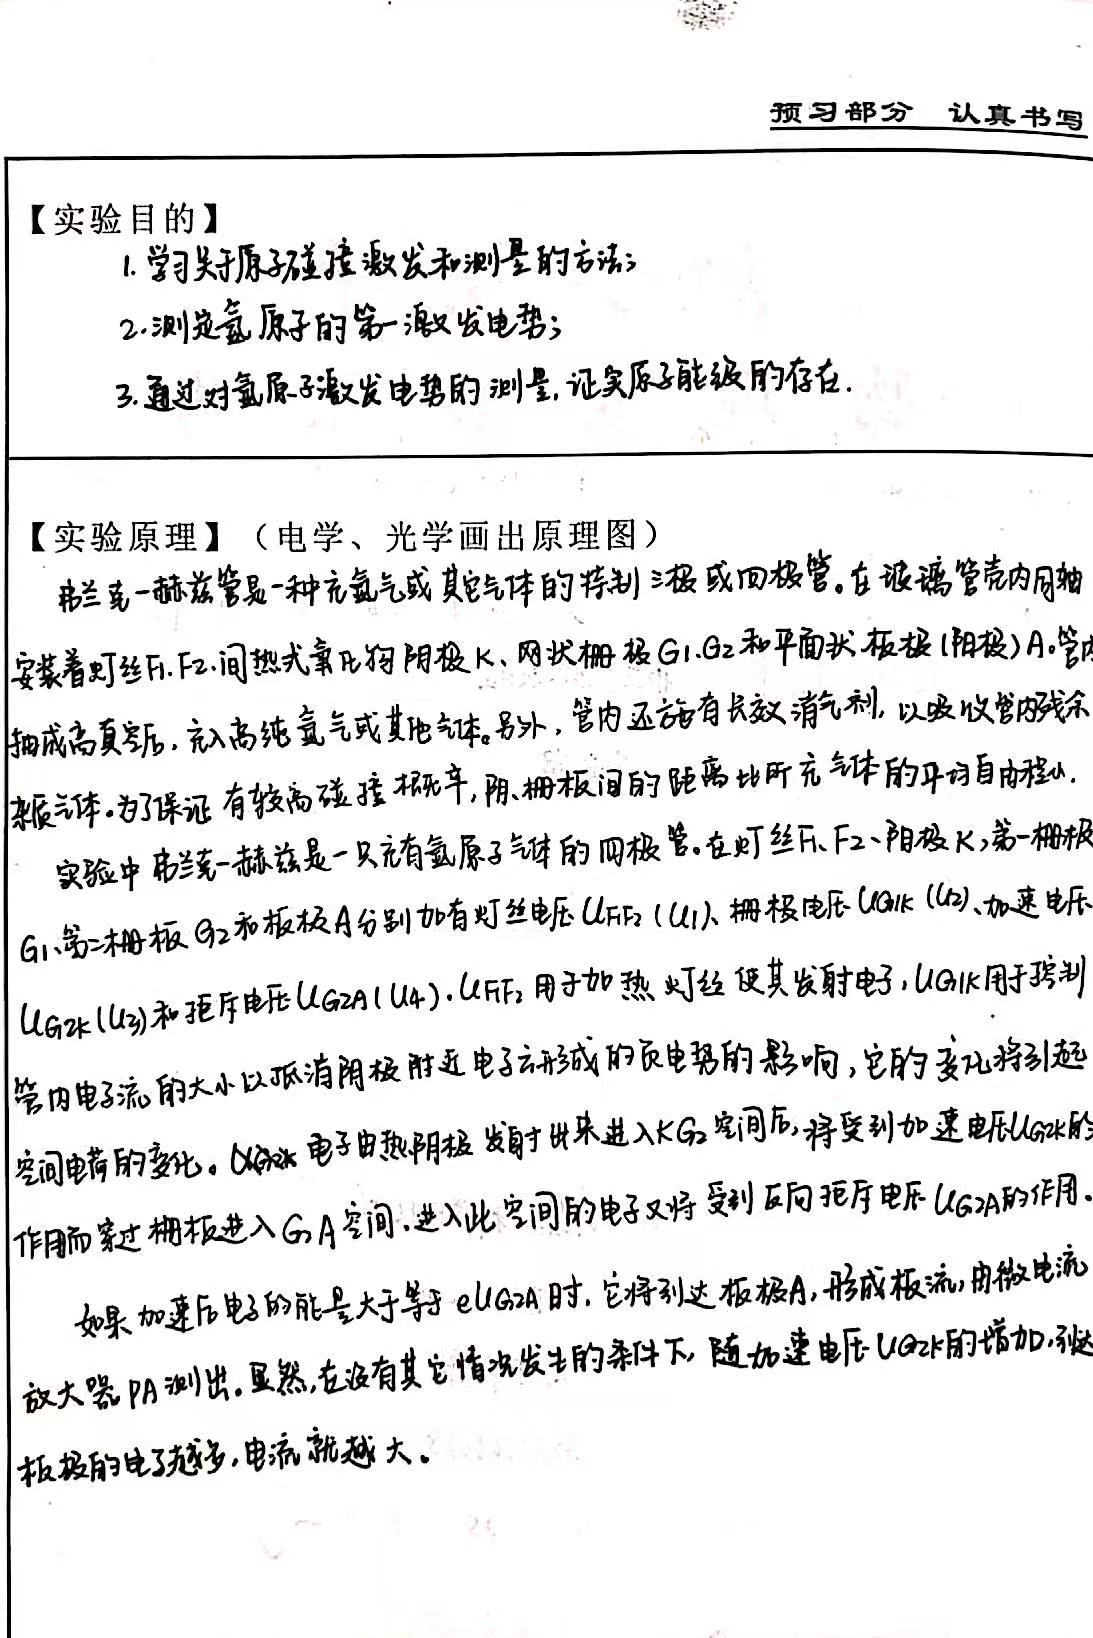 预习部分 认真书写
【实验目的】
1. 学习关于原子碰撞激发和测量的方法;
2. 测定氩原子的第一激发电势;
3. 通过对氩原子激发电势的测量,证实原子能级的存在.
【实验原理】(电学、光学画出原理图)
弗兰克-赫兹管是一种充氩气或其它气体的特制三极或四极管。在玻璃管壳内同轴
安装着灯丝F1.F2.间热式氧化物阴极K、网状栅极G1.G2和平面状板极(阳极)A。管内
抽成高真空后,充入高纯氩气或其他气体。另外,管内还放有长效消气剂,以吸收管内残余
杂质气体。为了保证有较高碰撞概率,阴、栅板间的距离比所充气体的平均自由程小.
实验中弗兰克-赫兹是一只充有氩原子气体的四极管。在灯丝F1、F2、阴极K,第一栅极
G1、第二栅板G2和板极A分别加有灯丝电压UF1F2(U1)、栅极电压UG1K(U2)、加速电压
UG2K(U3)和拒斥电压UG2A(U4).UF1F2用于加热灯丝使其发射电子,UG1K用于控制
管内电子流的大小以抵消阴极附近电子云形成的负电势的影响,它的变化将引起
空间电荷的变化。电子由热阴极发射出来进入KG2空间后,将受到加速电压UG2K的
作用而穿过栅板进入G2A空间.进入此空间的电子又将受到反向拒斥电压UG2A的作用.
如果加速后电子的能量大于等于eUG2A时.它将到达板极A,形成板流,由微电流
放大器PA测出.显然,在没有其它情况发生的条件下,随加速电压UG2K的增加,到达
板极的电子越多,电流就越大。